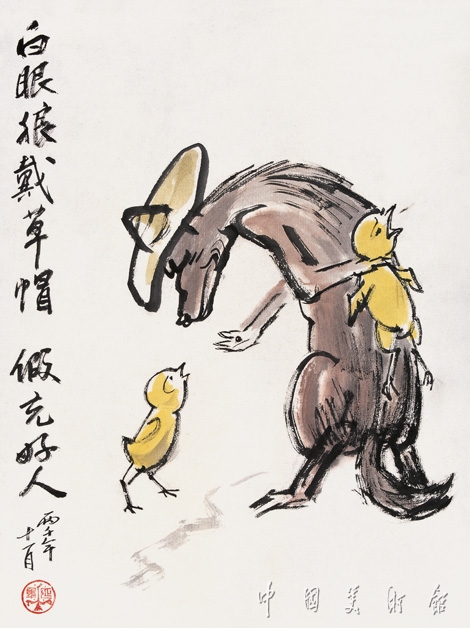 白眼狼戴草帽 假充好人
丙子年
十一月
中國美術館